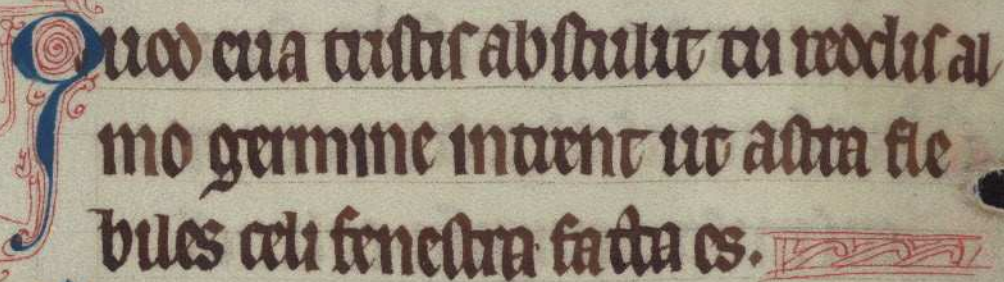 Quod eua tristis abstulit tu reddis al
mo germine intrent ut astra fle
biles celi fenestra facta es.